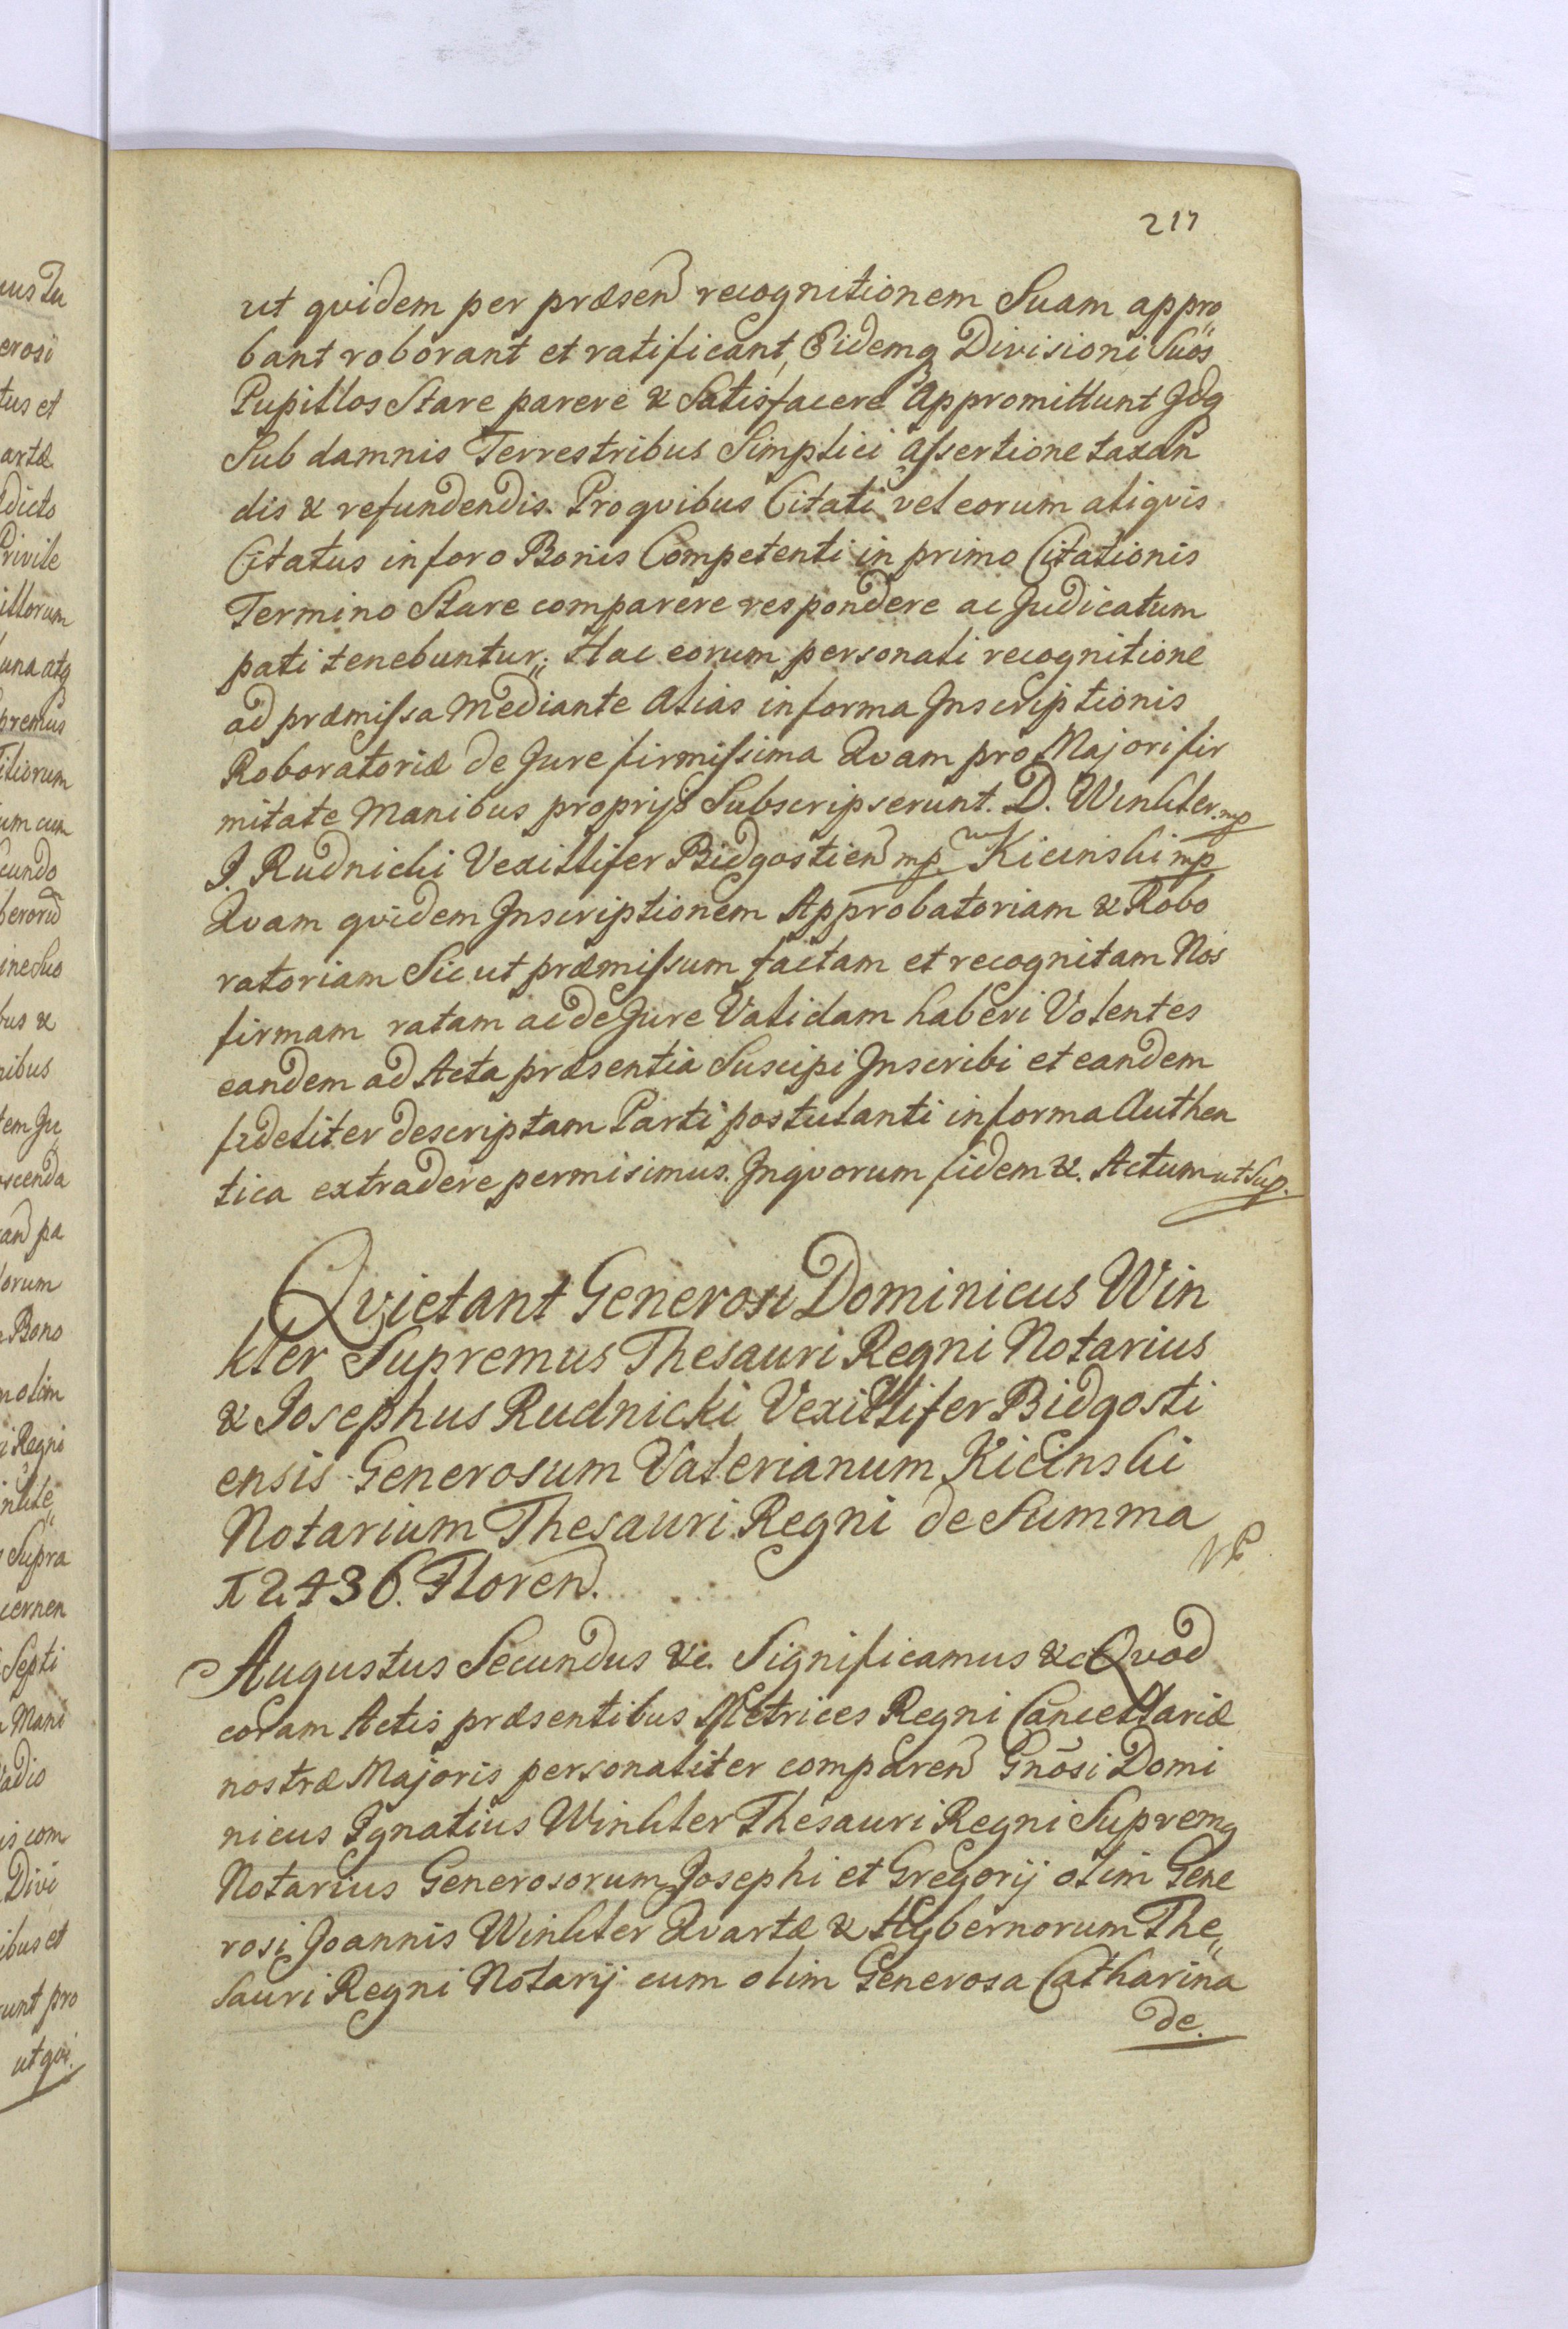 217
ut qvidem per præsen recognitionem Suam appro„
bant roborant et ratificant, Eidemq Divisioni Suos
Pupillos Stare parere & Satisfacere appromittunt Idq
Sub damnis Terrestribus Simplici assertione taxan
dis & refundendis. Pro qvibus Citati vel eorum aliqvis
Citatus in foro Bonis Competenti in primo Citationis
Termino Stare comparere respondere ac Judicatum
pati tenebuntur„ Hac eorum personali recognitione
ad præmissa Mediante alias in forma Inscriptionis
Roboratoriæ de Jure firmissima Qvam pro Majori fir
mitate Manibus proprijs Subscripserunt. D. Winkler mp
J. Rudnicki Vexillifer Bidgostien mp. Kicinski mp
Qvam qvidem Inscriptionem Approbatoriam & Robo
ratoriam Sic ut præmissum factam et recognitam Nos
firmam ratam ac de Jure Validam haberi Volentes
eandem ad Acta præsentia Suscipi Inscribi et eandem
fideliter descriptam Parti postulanti in forma Authen
tica extradere permisimus. In qvorum fidem &. Actum ut Sup.
Qvietant Generosi Dominicus Win
kler Supremus Thesauri Regni Notarius
& Josephus Rudnicki Vexillifer Bidgosti
ensis Generosum Valerianum Kicinski
Notarium Thesauri Regni de Summa
12436. Floren.
Augustus Secundus &c. Significamus &c Qvod
coram Actis præsentibus Metrices Regni Cancellariæ
nostræ Majoris personaliter comparen Gnosi Domi
nicus Ignatius Winkler Thesauri Regni Supremq
Notarius Generosorum Josephi et Gregorij olim Gene
rosi Joannis Winkler Qvartæ & Hybernorum The„
sauri Regni Notarij cum olim Generosa Catharina
de.